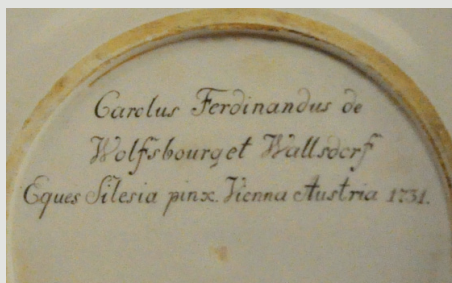 Carolus Ferdinandus de
Wolfsbourg et Wallsdorf
Eques Silesia pinx. Vienna Austria 1731.